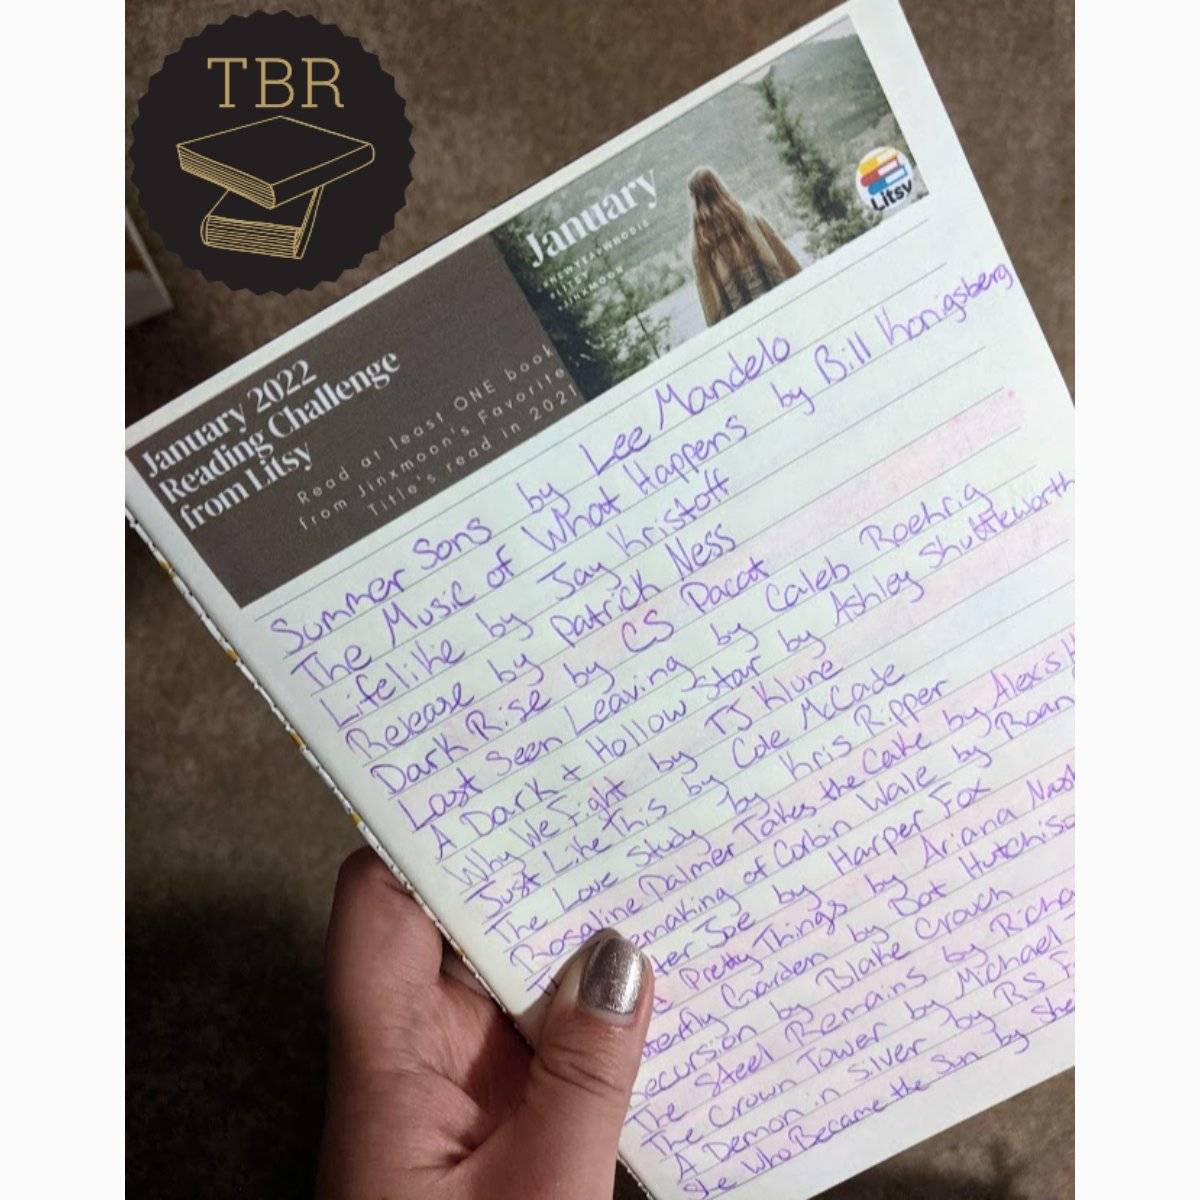 TBR
January
#NEWYEARWHODIS
JINXMOON
Litsy
January 2022
Reading Challenge
from Litsy
Read at least ONE book
from Jinxmoon's Favorite
Title's read in 2021
Summer Sons by Lee Mandelo
The Music of What Happens by Bill Konigsberg
Lifelike by Jay Kristoff
Release by Patrick Ness
Dark Rise by CS Pacat
Last Seen Leaving by Caleb Roehrig
A Dark + Hollow Star by Ashley Shuttleworth
Why We Fight by TJ Klune
Just Like This by Cole McCade
The Love Study by Kris Ripper
Rosaline Palmer Takes the Cake by Alexis H
The emaking of Corbin Wale by Roan
ter Joe by Harper Fox
Pretty Things by Ariana Nash
terfly Garden by Dot Hutchiso
ecursion by Blake Crouch
The Steel Remains by Richa
The Crown Tower by Michael
A Demon in Silver by RS F
She Who Became the Sun by She